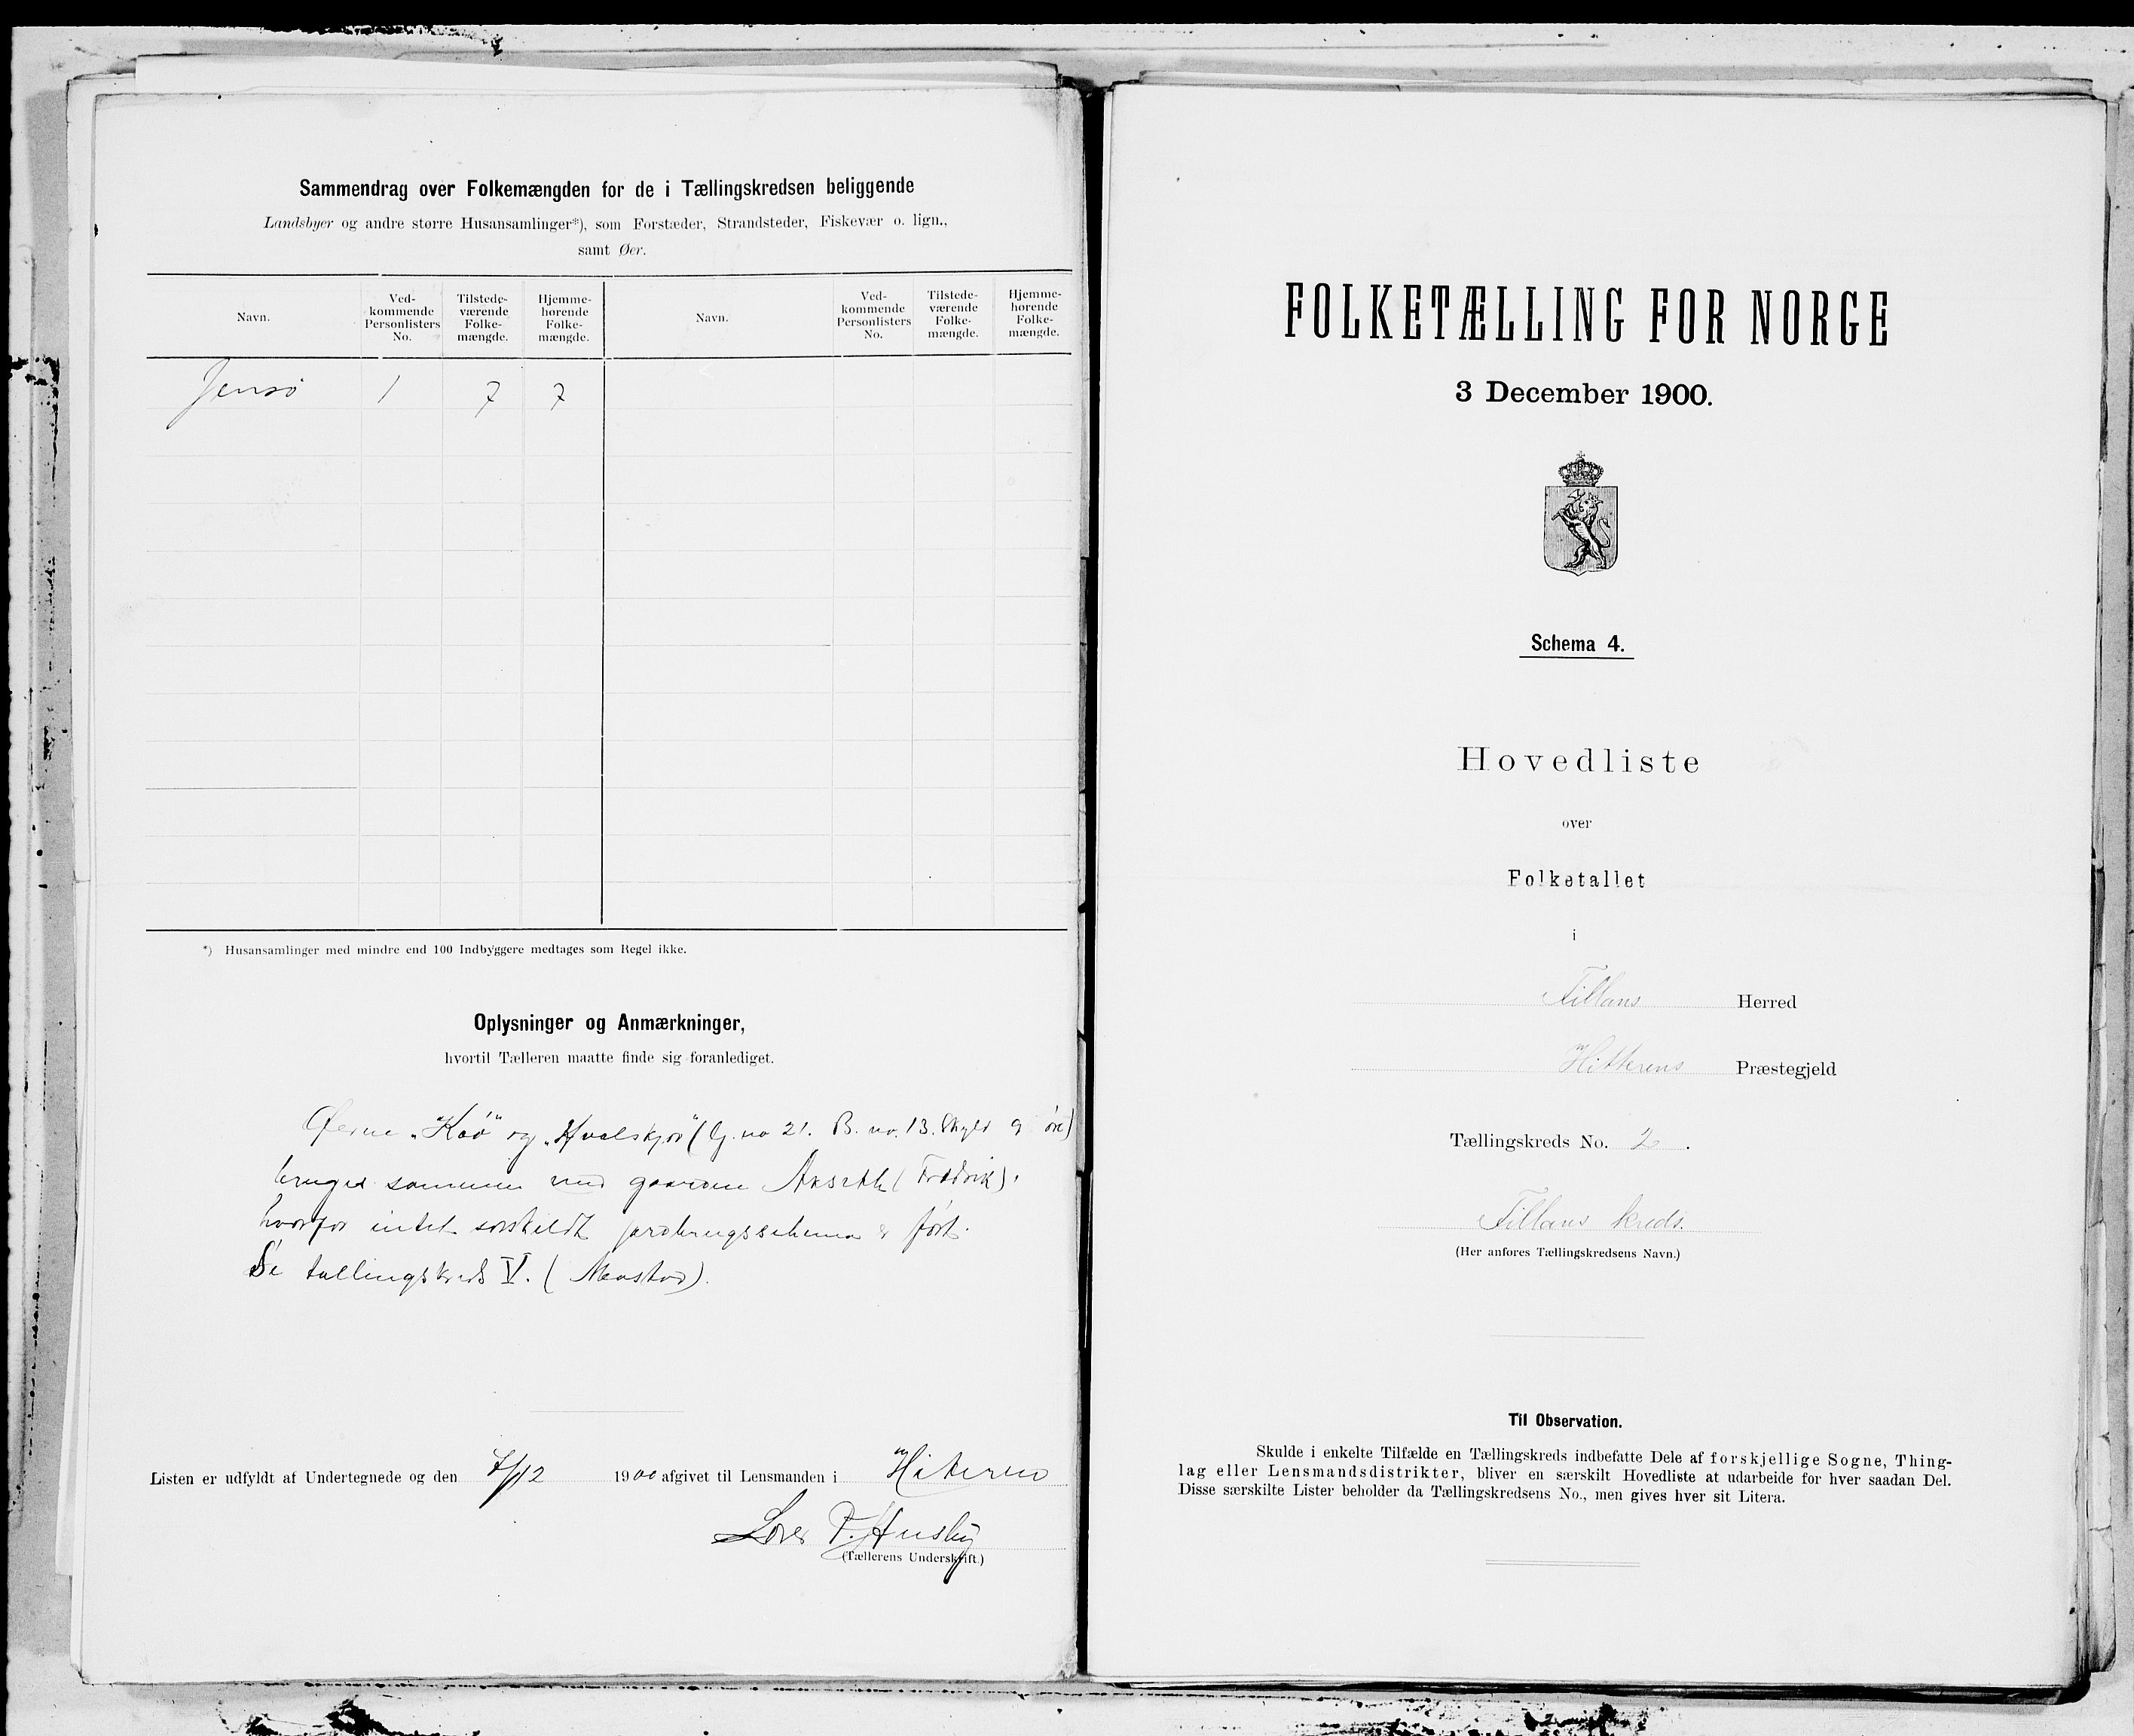 Sammendrag over Folkemængden for de i Tællingskredsen beliggende
Landsbyer og andre større Husansamlinger*), som Forstæder, Strandsteder, Fiskevær o. lign.,
samt Øer.
Navn. Ved-kommende Personlisters No. Tilstede-værende Folke-mængde. Hjemme-hørende Folke-mængde. Navn. Ved-kommende Personlisters No. Tilstede-værende Folke-mængde. Hjemme-hørende Folke-mængde.
Jensø 1 7 7
*) Husansamlinger med mindre end 100 Indbyggere medtages som Regel ikke.
Oplysninger og Anmærkninger,
hvortil Tælleren maatte finde sig foranlediget.
Øerne "Kaø" og (G. no 21. B. no. 13. Skyld 9 øre)
bruges sammen med gaardene (Fredrik),
hvorfor intet særskildt jordbrugsschema er ført.
Se tællingskreds V. ( ).
Listen er udfyldt af Undertegnede og den 7/12 1900 afgivet til Lensmanden i Hiteren
P. Husby
(Tællerens Underskrift.)
FOLKETÆLLING FOR NORGE
3 December 1900.
Schema 4.
Hovedliste
over
Folketallet
i
Fillans Herred
Hitterens Præstegjeld
Tællingskreds No. 2.
Fillans kreds.
(Her anføres Tællingskredsens Navn.)
Til Observation.
Skulde i enkelte Tilfælde en Tællingskreds indbefatte Dele af forskjellige Sogne, Thing-
lag eller Lensmandsdistrikter, bliver en særskilt Hovedliste at udarbeide for hver saadan Del.
Disse særskilte Lister beholder da Tællingskredsens No., men gives hver sit Litera.